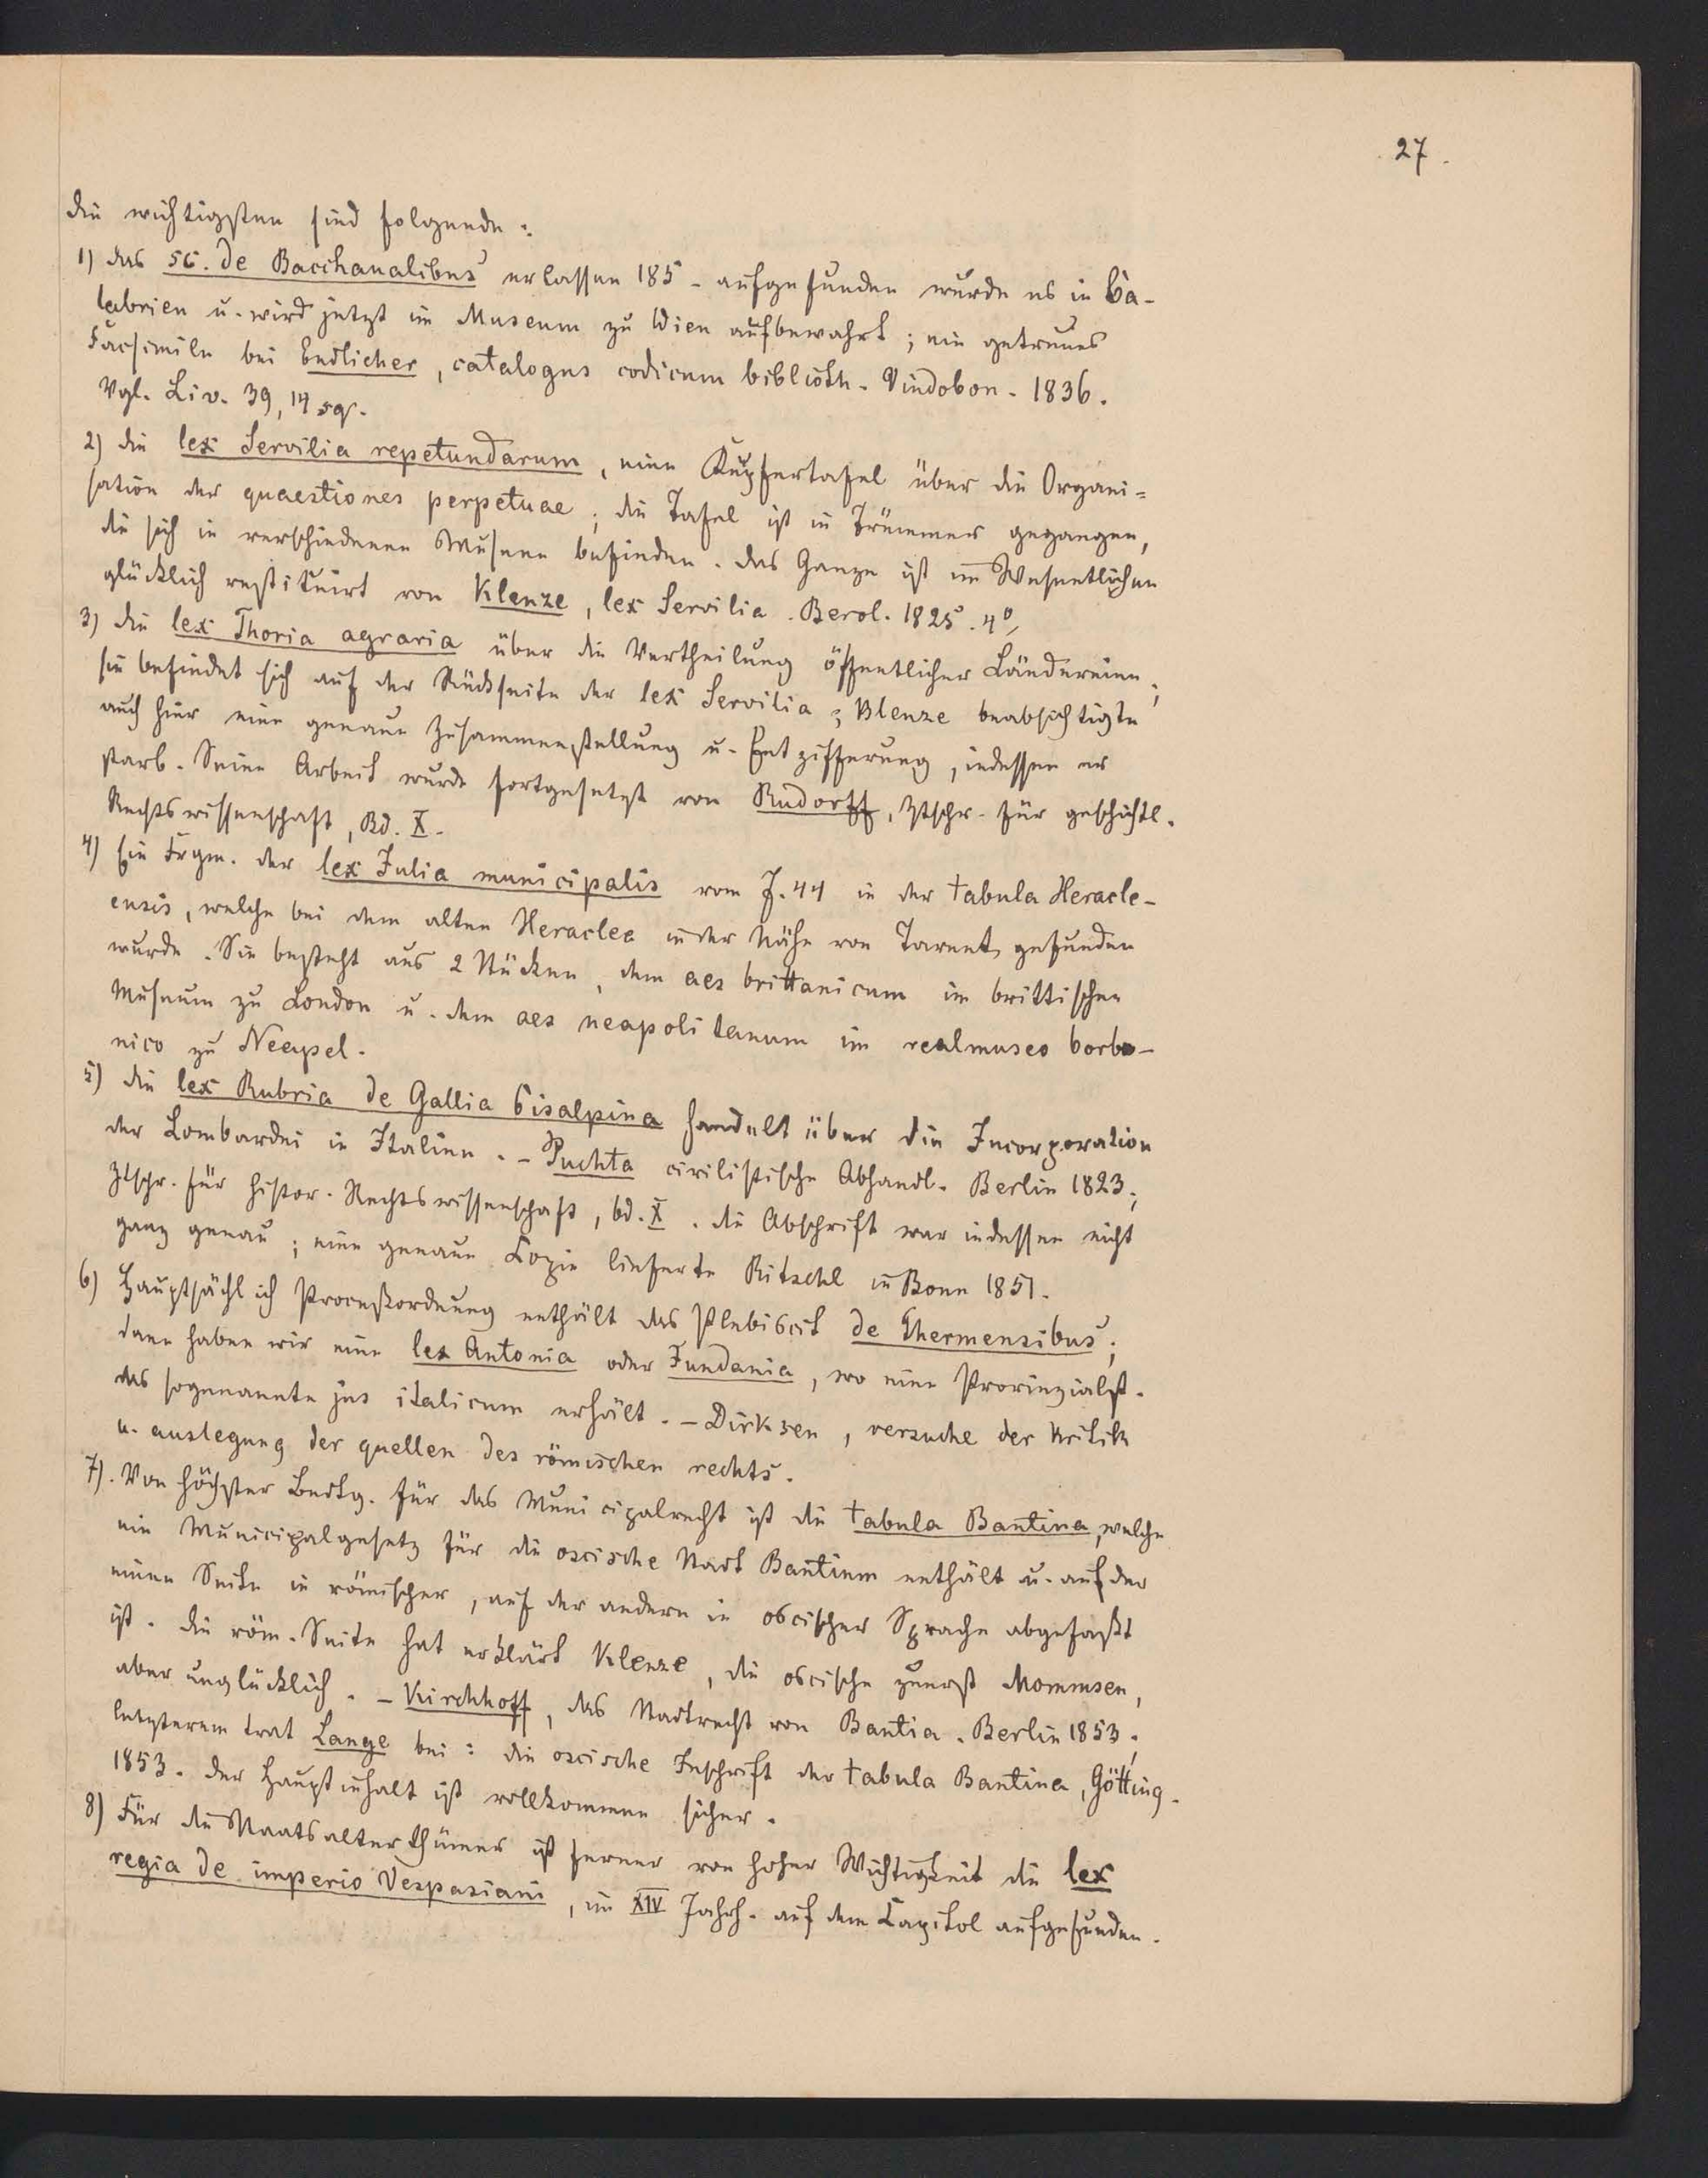 27.
die wichtigsten sind folgende:
1) das SC. de Bacchanalibus erlassen 185 - aufgefunden wurde es in Ca-
labrien u. wird jetzt im Museum zu Wien aufbewahrt; ein getreues
Facsimile bei Endlicher, catalogus codicum biblioth. Vindobon. 1836.
Vgl. Liv. 39, 14 sq.
2) die lex Servilia repetundarum, eine Kupfertafel über die Organi=
sation der quaestiones perpetuae; die Tafel ist in Trümmer gegangen,
die sich in verschiedenen Museen befinden. das Ganze ist im Wesentlichen
glücklich restituirt von Klenze, lex Servilia. Berol. 1825. 4º,
3) die lex Thoria agraria über die Vertheilung öffentlicher Ländereien;
sie befindet sich auf der Rückseite der lex Servilia; Klenze beabsichtigte
auch hier eine genaue Zusammenstellung u. Entzifferung, indessen er
starb. Seine Arbeit wurde fortgesetzt von Rudorff, Ztschr. für geschichtl.
Rechtswissenschaft, Bd. X.
4) Ein Frgm. der lex Julia municipalis vom J. 44 in der tabula Heracle-
ensis, welche bei dem alten Heraclea in der Nähe von Tarent gefunden
wurde. Sie besteht aus 2 Stücken, dem aes brittanicum im brittischen
Museum zu London u. dem aes neapolitanum im realmuseo borbo-
nico zu Neapel.
5) die lex Rubria de Gallia Cisalpina handelt über die Incorporation
der Lombardei in Italien. - Puchta civilistische Abhandl. Berlin 1823;
Ztschr. für histor. Rechtswissenschaft, bd. X. die Abschrift war indessen nicht
ganz genau; eine genaue Copie lieferte Ritschl in Bonn 1851.
6) Hauptsächlich Proceßordnung enthält das Plebiscit de Thermensibus;
dann haben wir eine lex Antonia oder Fundania, wo eine Provinzialst.
das sogenannte jus italicum erhält. - Dirksen, versuche der kritik
u. auslegung der quellen des römischen rechts.
7). Von höchster Bedtg. für das Municipalrecht ist die tabula Bantina, welche
ein Municipalgesetz für die oscische Stadt Bantium enthält u. auf der
einen Seite in römischer, auf der andern in oscischer Sprache abgefaßt
ist. die röm. Seite hat erklärt Klenze, die oscische zuerst Mommsen,
aber unglücklich. - Kirchhoff, das Stadtrecht von Bantia. Berlin 1853;
letzterem trat Lange bei: die oscische Inschrift der tabula Bantina, Götting.
1853. der Hauptinhalt ist vollkommen sicher.
8) Für die Staatsalterthümer ist ferner von hoher Wichtigkeit die lex
regia de imperio Vespasiani, im XIV Jahrh. auf dem Capitol aufgefunden.